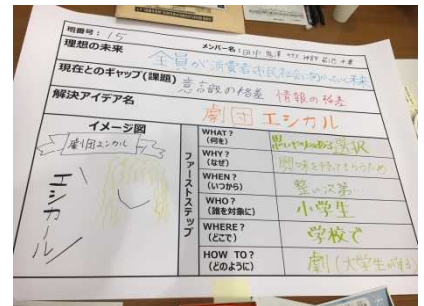 班番号：15
メンバー名：田中
理想の未来
全員が消費者市民社会に向かっていく未来
現在とのギャップ(課題)
意識の格差 情報の格差
解決アイデア名
劇団エシカル
イメージ図
劇団エシカル
エシカール
ファーストステップ
WHAT？
(何を)
思いやりのある選択
WHY？
(なぜ)
興味を持ってもらうため
WHEN？
(いつから)
整い次第…
WHO？
(誰を対象に)
小学生
WHERE？
(どこで)
学校で
HOW TO？
(どのように)
劇(大学生がする)